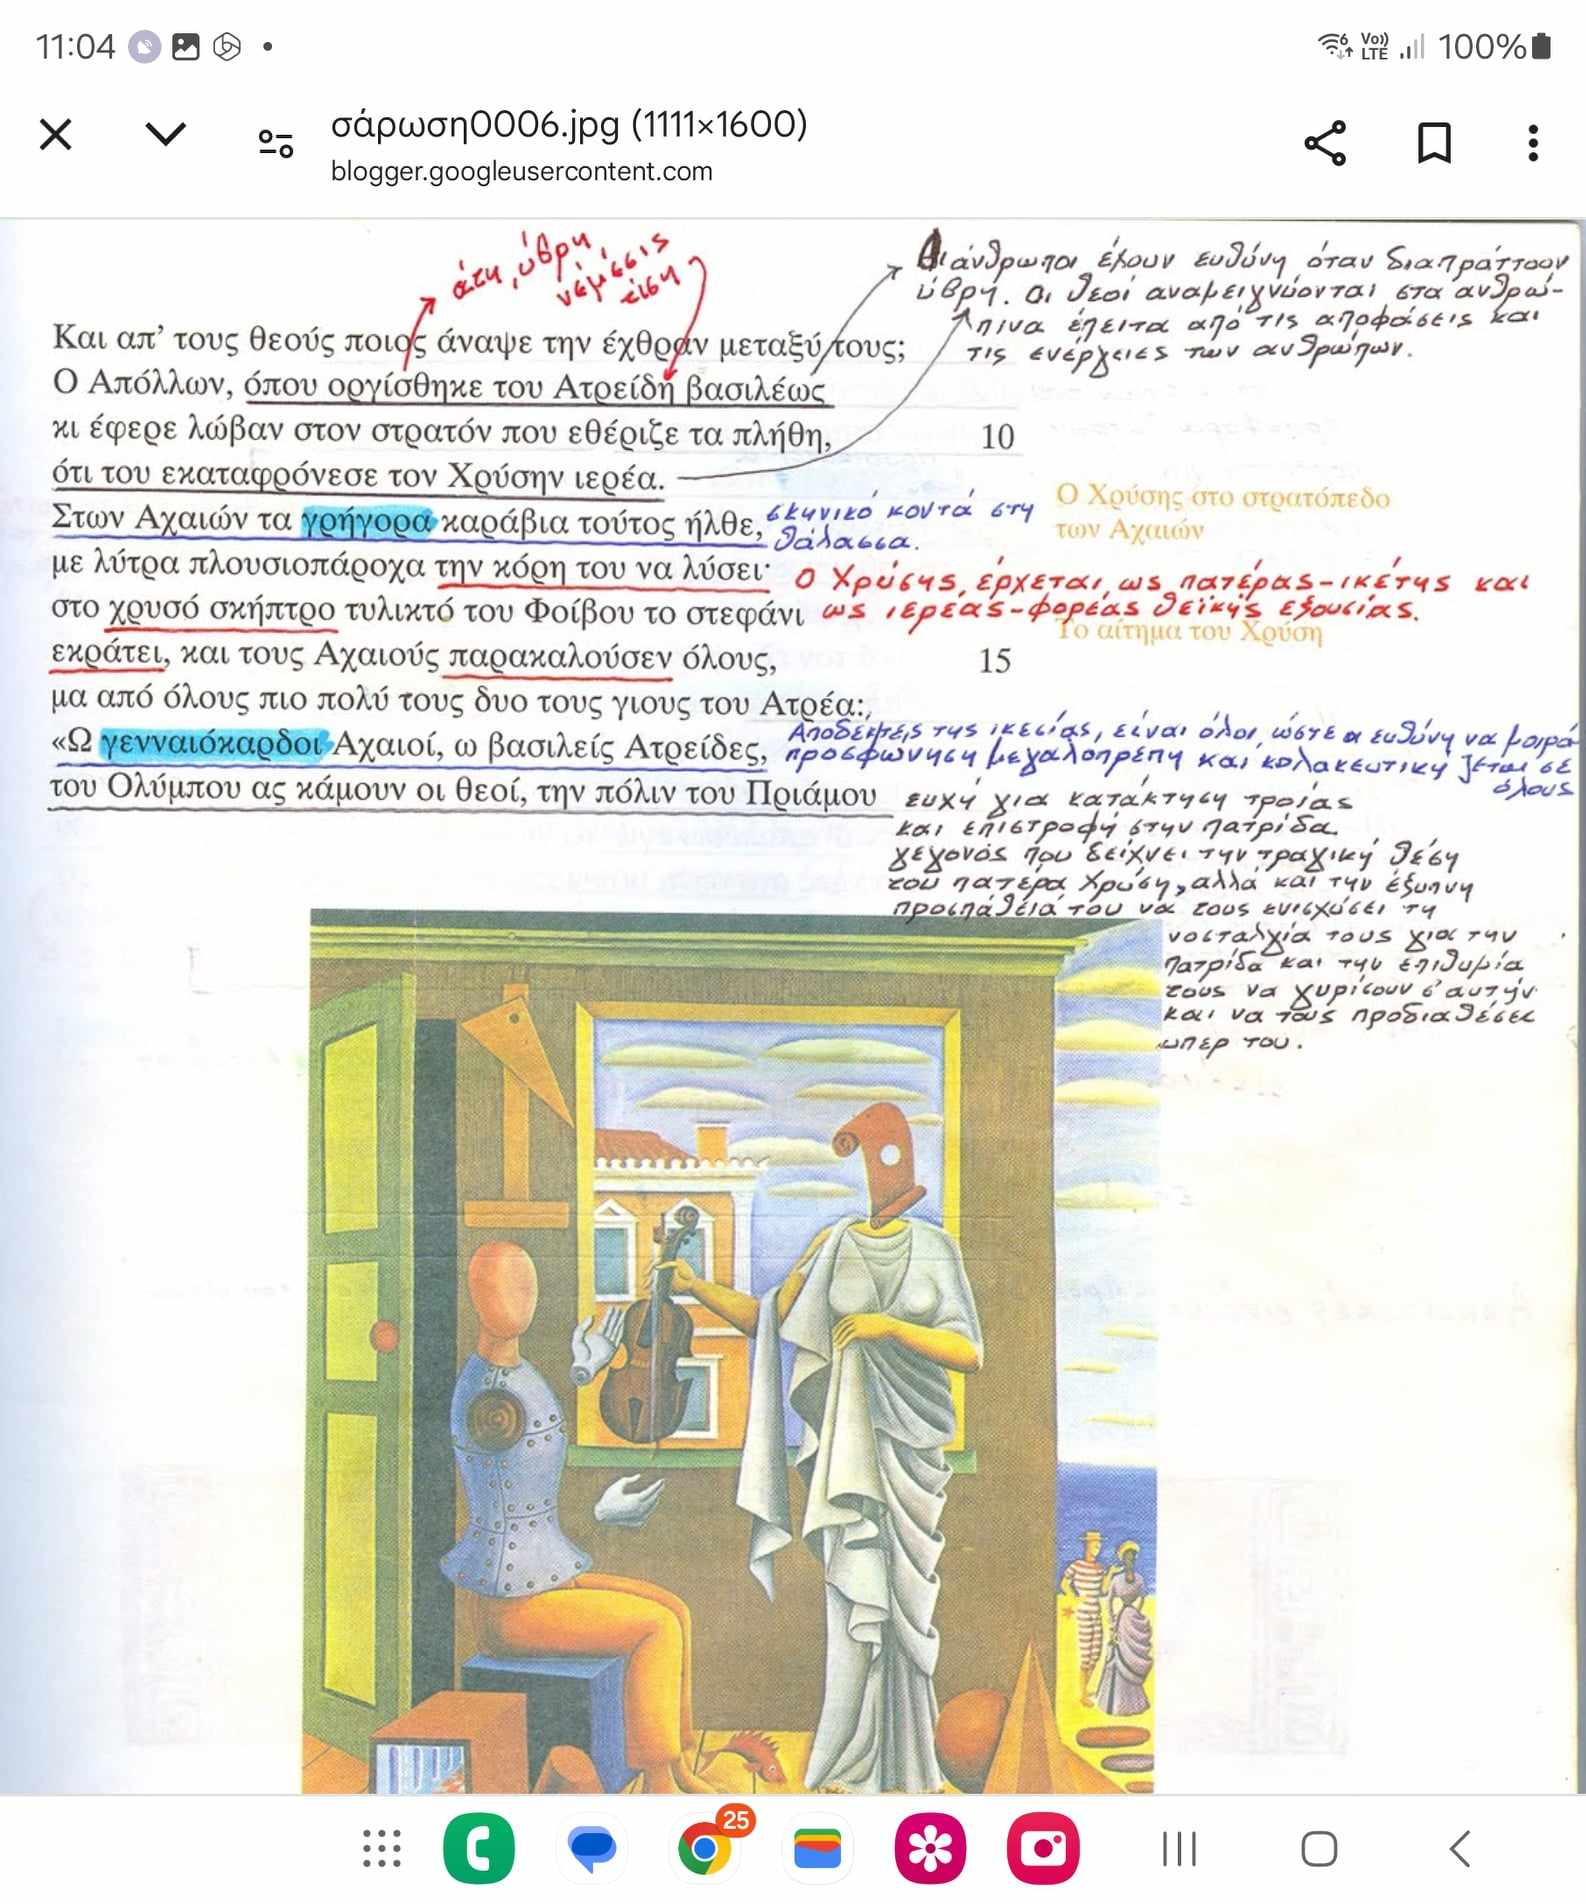 11:04
Vo)) LTE 100%
σάρωση0006.jpg (1111×1600)
blogger.googleusercontent.com
άτη, ύβρη
νέμεσις
τίση
Οι άνθρωποι έχουν ευθύνη όταν διαπράττουν
ύβρη. Οι θεοί αναμειγνύονται στα ανθρώ-
πινα έπειτα από τις αποφάσεις και
τις ενέργειες των ανθρώπων.
Και απ' τους θεούς ποιος άναψε την έχθραν μεταξύ τους;
Ο Απόλλων, όπου οργίσθηκε του Ατρείδη βασιλέως
κι έφερε λώβαν στον στρατόν που εθέριζε τα πλήθη, 10
ότι του εκαταφρόνεσε τον Χρύσην ιερέα.
Ο Χρύσης στο στρατόπεδο
των Αχαιών
Στων Αχαιών τα γρήγορα καράβια τούτος ήλθε, σκηνικό κοντά στη
θάλασσα.
με λύτρα πλουσιοπάροχα την κόρη του να λύσει· Ο Χρύσης, έρχεται, ως πατέρας-ικέτης και
στο χρυσό σκήπτρο τυλικτό του Φοίβου το στεφάνι ως ιερέας-φορέας θεϊκής εξουσίας.
Το αίτημα του Χρύση
εκράτει, και τους Αχαιούς παρακαλούσεν όλους, 15
μα από όλους πιο πολύ τους δυο τους γιους του Ατρέα:
Αποδέκτες της ικεσίας, είναι όλοι, ώστε η ευθύνη να μοιρά
«Ω γενναιόκαρδοι Αχαιοί, ω βασιλείς Ατρείδες, προσφώνηση μεγαλοπρέπη και κολακευτική ζεται σε
όλους
του Ολύμπου ας κάμουν οι θεοί, την πόλιν του Πριάμου ευχή για κατάκτηση τροίας
και επιστροφή στην πατρίδα.
γεγονός που δείχνει την τραγική θέση
του πατέρα Χρύση, αλλά και την έξυπνη
προσπάθειά του να τους ενισχύσει τη
νοσταλγία τους για την
πατρίδα και την επιθυμία
τους να γυρίσουν σ' αυτήν
και να τους προδιαθέσει
υπερ του.
25